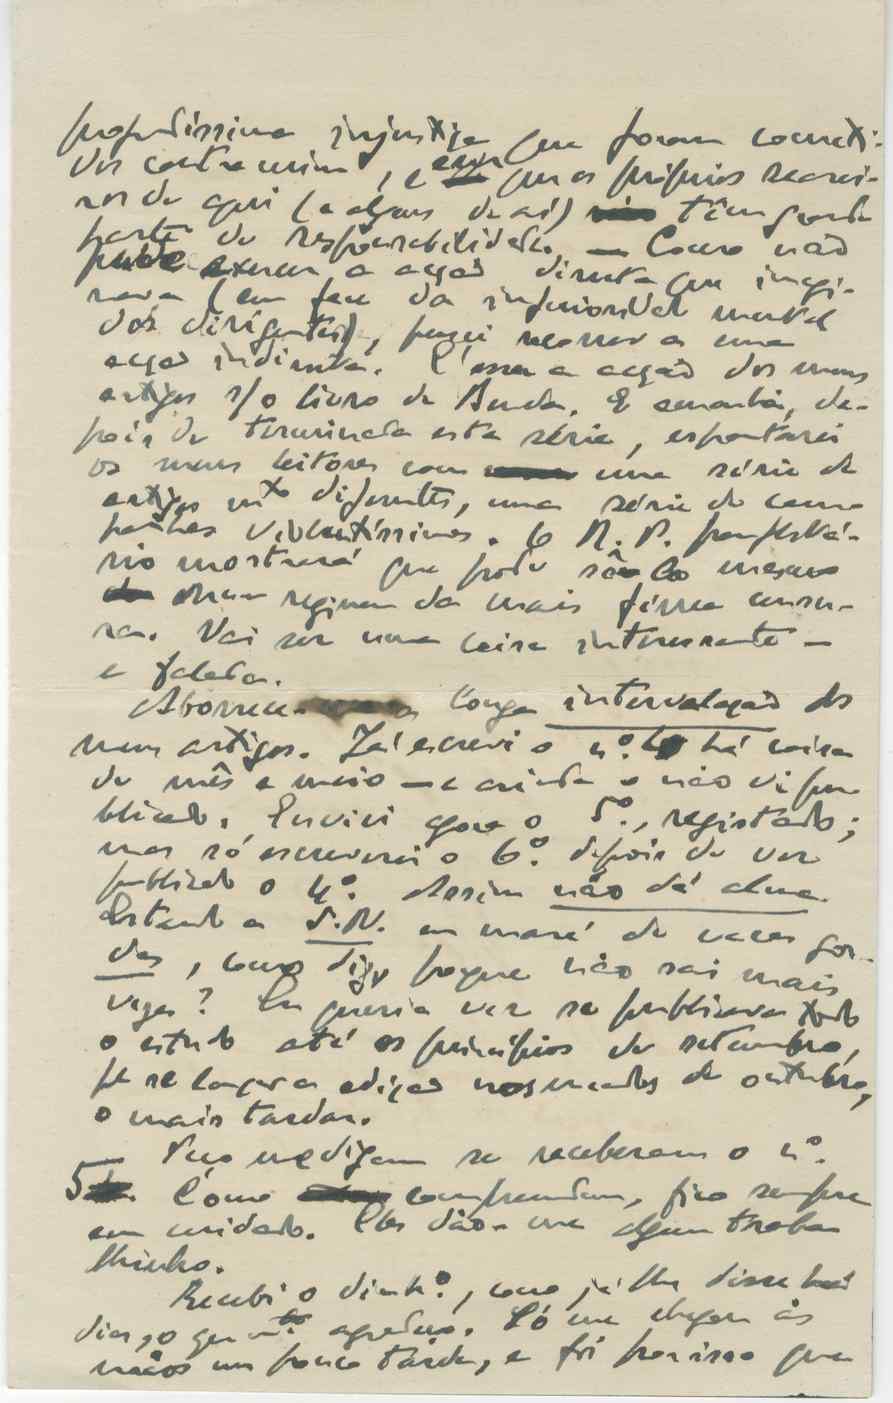 profundíssima injustiça que foram cometi-
dos contra mim, e em que os próprios searei-
ros de aqui (e alguns de aí) têm grande
parte de responsabilidade. — Como não
pude exercer a acção directa que imagi-
nava (em face da inferioridade mental
dos dirigentes), pensei recorrer a uma
acção indirecta. É essa a acção dos meus
artigos s/o livro de Benda. E amanhã, de-
pois de terminada esta série, espantarei
os meus leitores com uma série de
artigos mto diferentes, uma série de cam-
panhas violentíssimas. O R. P. panfletá-
rio mostrará que pode sê-lo mesmo
num regimen da mais férrea censu-
ra. Vai ser uma coisa interessante —
e falada.
Aborrece- a longa intervalação dos
meus artigos. Já escrevi o n.º 4 há coisa
de mês e meio — e ainda o não vi pu-
blicado. Enviei agora o 5.º, registado;
mas só escreverei o 6.º depois de ver
publicado o 4.º. Assim não dá alma.
Estando a S.N. em maré de vacas gor-
das, como diz, porque não sai mais
vezes? Eu queria ver se publicava todo
o estudo até os princípios de setembro,
pª se lançar a edição nos meados de outubro,
o mais tardar.
— Peço me digam se receberam o n.º
5. Como compreendem, fico sempre
em cuidado. Eles dão-me algum traba-
lhinho.
Recebi o dinhº., como já lhe disse há
dias, o que mto agradeço. Só me chegou às
mãos um pouco tarde, e foi por isso que